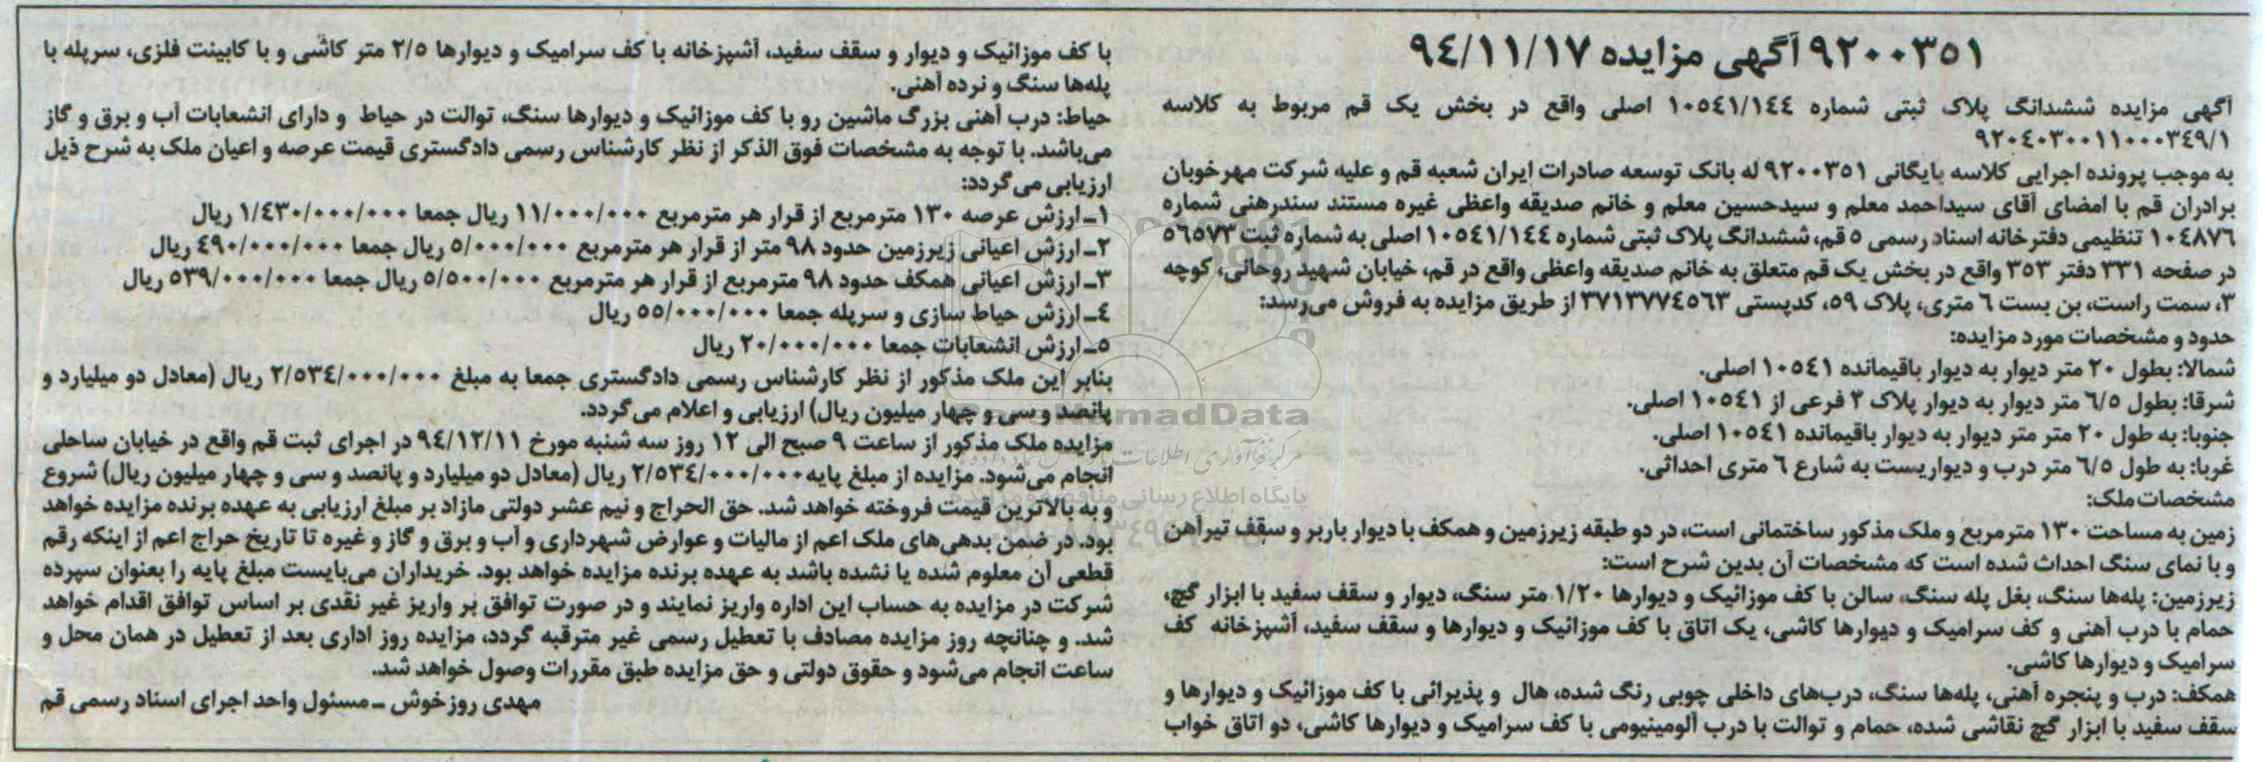 ۹۲۰۰۳۵۱ آگهی مزایده ۹٤/۱۱/۱۷
آگهی مزایده ششدانگ پلاک ثبتی شماره ۱۰۵٤۱/۱٤٤ اصلی واقع در بخش یک قم مربوط به کلاسه
۹۲۰٤۰۳۰۰۱۱۰۰۰۳٤۹/۱
به موجب پرونده اجرایی کلاسه بایگانی ۹۲۰۰۳۵۱ له بانک توسعه صادرات ایران شعبه قم و علیه شرکت مهرخوبان
برادران قم با امضای آقای سیداحمد معلم و سیدحسین معلم و خانم صدیقه واعظی غیره مستند سندرهنی شماره
۱۰٤۸۷٦ تنظیمی دفترخانه اسناد رسمی ۵ قم، ششدانگ پلاک ثبتی شماره ۱۰۵٤۱/۱٤٤ اصلی به شماره ثبت ۵٦۵۷۳
در صفحه ۳۳۱ دفتر ۳۵۳ واقع در بخش یک قم متعلق به خانم صدیقه واعظی واقع در قم، خیابان شهید روحانی، کوچه
۳، سمت راست، بن بست ٦ متری، پلاک ۵۹، کدپستی ۳۷۱۳۷۷٤۵٦۳ از طریق مزایده به فروش می‌رسد:
حدود و مشخصات مورد مزایده:
شمالا: بطول ۲۰ متر دیوار به دیوار باقیمانده ۱۰۵٤۱ اصلی.
شرقا: بطول ٦/۵ متر دیوار به دیوار پلاک ۳ فرعی از ۱۰۵٤۱ اصلی.
جنوبا: به طول ۲۰ متر متر دیوار به دیوار باقیمانده ۱۰۵٤۱ اصلی.
غربا: به طول ٦/۵ متر درب و دیواریست به شارع ٦ متری احداثی.
مشخصات ملک:
زمین به مساحت ۱۳۰ مترمربع و ملک مذکور ساختمانی است، در دو طبقه زیرزمین و همکف با دیوار باربر و سقف تیرآهن
و با نمای سنگ احداث شده است که مشخصات آن بدین شرح است:
زیرزمین: پله‌ها سنگ، بغل پله سنگ، سالن با کف موزائیک و دیوارها ۱/۲۰ متر سنگ، دیوار و سقف سفید با ابزار گچ،
حمام با درب آهنی و کف سرامیک و دیوارها کاشی، یک اتاق با کف موزائیک و دیوارها و سقف سفید، آشپزخانه کف
سرامیک و دیوارها کاشی.
همکف: درب و پنجره آهنی، پله‌ها سنگ، درب‌های داخلی چوبی رنگ شده، هال و پذیرائی با کف موزائیک و دیوارها و
سقف سفید با ابزار گچ نقاشی شده، حمام و توالت با درب آلومینیومی با کف سرامیک و دیوارها کاشی، دو اتاق خواب
با کف موزائیک و دیوار و سقف سفید، آشپزخانه با کف سرامیک و دیوارها ۲/۵ متر کاشی و با کابینت فلزی، سرپله با
پله‌ها سنگ و نرده آهنی.
حیاط: درب آهنی بزرگ ماشین رو با کف موزائیک و دیوارها سنگ، توالت در حیاط و دارای انشعابات آب و برق و گاز
می‌باشد. با توجه به مشخصات فوق الذکر از نظر کارشناس رسمی دادگستری قیمت عرصه و اعیان ملک به شرح ذیل
ارزیابی می‌گردد:
۱ـ ارزش عرصه ۱۳۰ مترمربع از قرار هر مترمربع ۱۱/۰۰۰/۰۰۰ ریال جمعا ۱/٤۳۰/۰۰۰/۰۰۰ ریال
۲ـ ارزش اعیانی زیرزمین حدود ۹۸ متر از قرار هر مترمربع ۵/۰۰۰/۰۰۰ ریال جمعا ٤۹۰/۰۰۰/۰۰۰ ریال
۳ـ ارزش اعیانی همکف حدود ۹۸ مترمربع از قرار هر مترمربع ۵/۵۰۰/۰۰۰ ریال جمعا ۵۳۹/۰۰۰/۰۰۰ ریال
٤ـ ارزش حیاط سازی و سرپله جمعا ۵۵/۰۰۰/۰۰۰ ریال
۵ـ ارزش انشعابات جمعا ۲۰/۰۰۰/۰۰۰ ریال
بنابر این ملک مذکور از نظر کارشناس رسمی دادگستری جمعا به مبلغ ۲/۵۳٤/۰۰۰/۰۰۰ ریال (معادل دو میلیارد و
پانصد و سی و چهار میلیون ریال) ارزیابی و اعلام می‌گردد.
مزایده ملک مذکور از ساعت ۹ صبح الی ۱۲ روز سه شنبه مورخ ۹٤/۱۲/۱۱ در اجرای ثبت قم واقع در خیابان ساحلی
انجام می‌شود. مزایده از مبلغ پایه ۲/۵۳٤/۰۰۰/۰۰۰ ریال (معادل دو میلیارد و پانصد و سی و چهار میلیون ریال) شروع
و به بالاترین قیمت فروخته خواهد شد. حق الحراج و نیم عشر دولتی مازاد بر مبلغ ارزیابی به عهده برنده مزایده خواهد
بود. در ضمن بدهی‌های ملک اعم از مالیات و عوارض شهرداری و آب و برق و گاز و غیره تا تاریخ حراج اعم از اینکه رقم
قطعی آن معلوم شده یا نشده باشد به عهده برنده مزایده خواهد بود. خریداران می‌بایست مبلغ پایه را بعنوان سپرده
شرکت در مزایده به حساب این اداره واریز نمایند و در صورت توافق بر واریز غیر نقدی بر اساس توافق اقدام خواهد
شد. و چنانچه روز مزایده مصادف با تعطیل رسمی غیر مترقبه گردد، مزایده روز اداری بعد از تعطیل در همان محل و
ساعت انجام می‌شود و حقوق دولتی و حق مزایده طبق مقررات وصول خواهد شد.
مهدی روزخوش ـ مسئول واحد اجرای اسناد رسمی قم